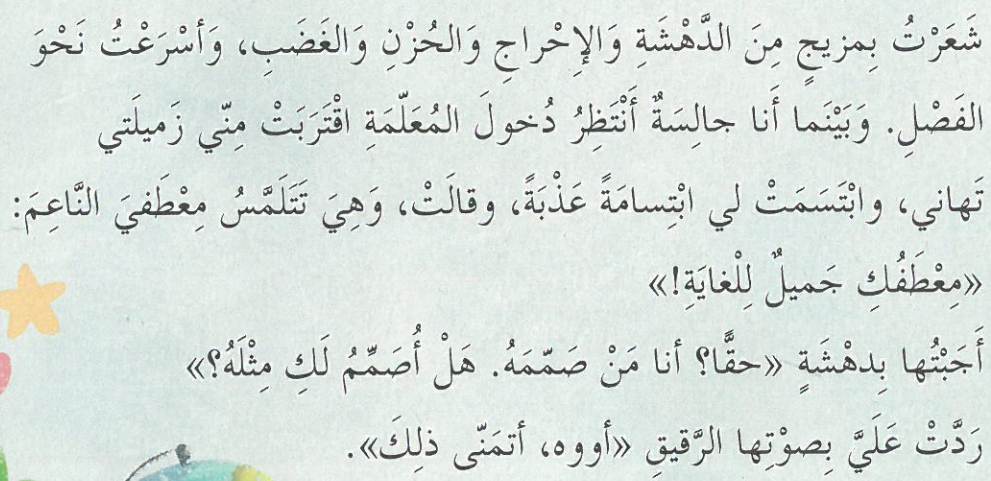 شَعَرْتُ بِمزيجٍ مِنَ الدَّهْشَةِ وَالإِحْراجِ وَالحُزْنِ وَالغَضَبِ، وَأَسْرَعْتُ نَحْوَ
الفَصْلِ. وَبَيْنَما أَنا جالِسَةٌ أَنْتَظِرُ دُخولَ المُعَلّمَةِ اقْتَرَبَتْ مِنّي زَميلَتي
تَهاني، وابْتَسَمَتْ لي ابْتِسامَةً عَذْبَةً، وقالَتْ، وَهِيَ تَتَلَمَّسُ مِعْطَفيَ النَّاعِمَ:
«مِعْطَفُكِ جَميلٌ لِلْغايَةِ!»
أَجَبْتُها بِدهْشَةٍ «حقًّا؟ أنا مَنْ صَمّمَهُ. هَلْ أُصَمِّمُ لَكِ مِثْلَهُ؟»
رَدَّتْ عَلَيَّ بِصوْتِها الرَّقيقِ «أووه، أتمَنّى ذلِكَ».